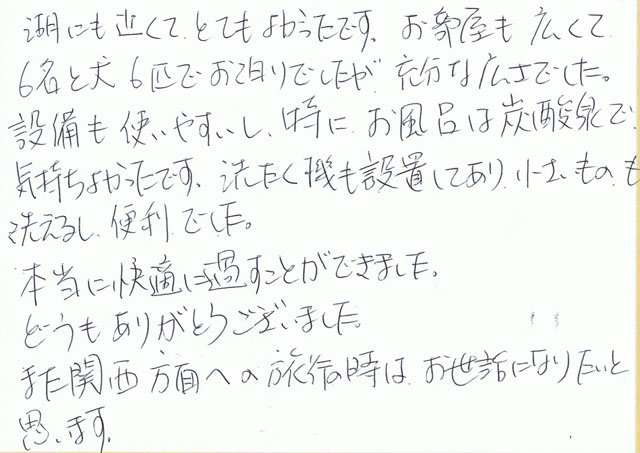 湖にも近くて、とてもよかったです。お部屋も広くて
6名と犬6匹でお泊りでしたが、充分な広さでした。
設備も使いやすいし、特に、お風呂は炭酸泉で
気持ちよかったです。洗たく機も設置してあり、小さいものも
洗えるし、便利でした。
本当に快適に過すことができました。
どうもありがとうございました。
また関西方面への旅行の時は、お世話になりたいと
思います。